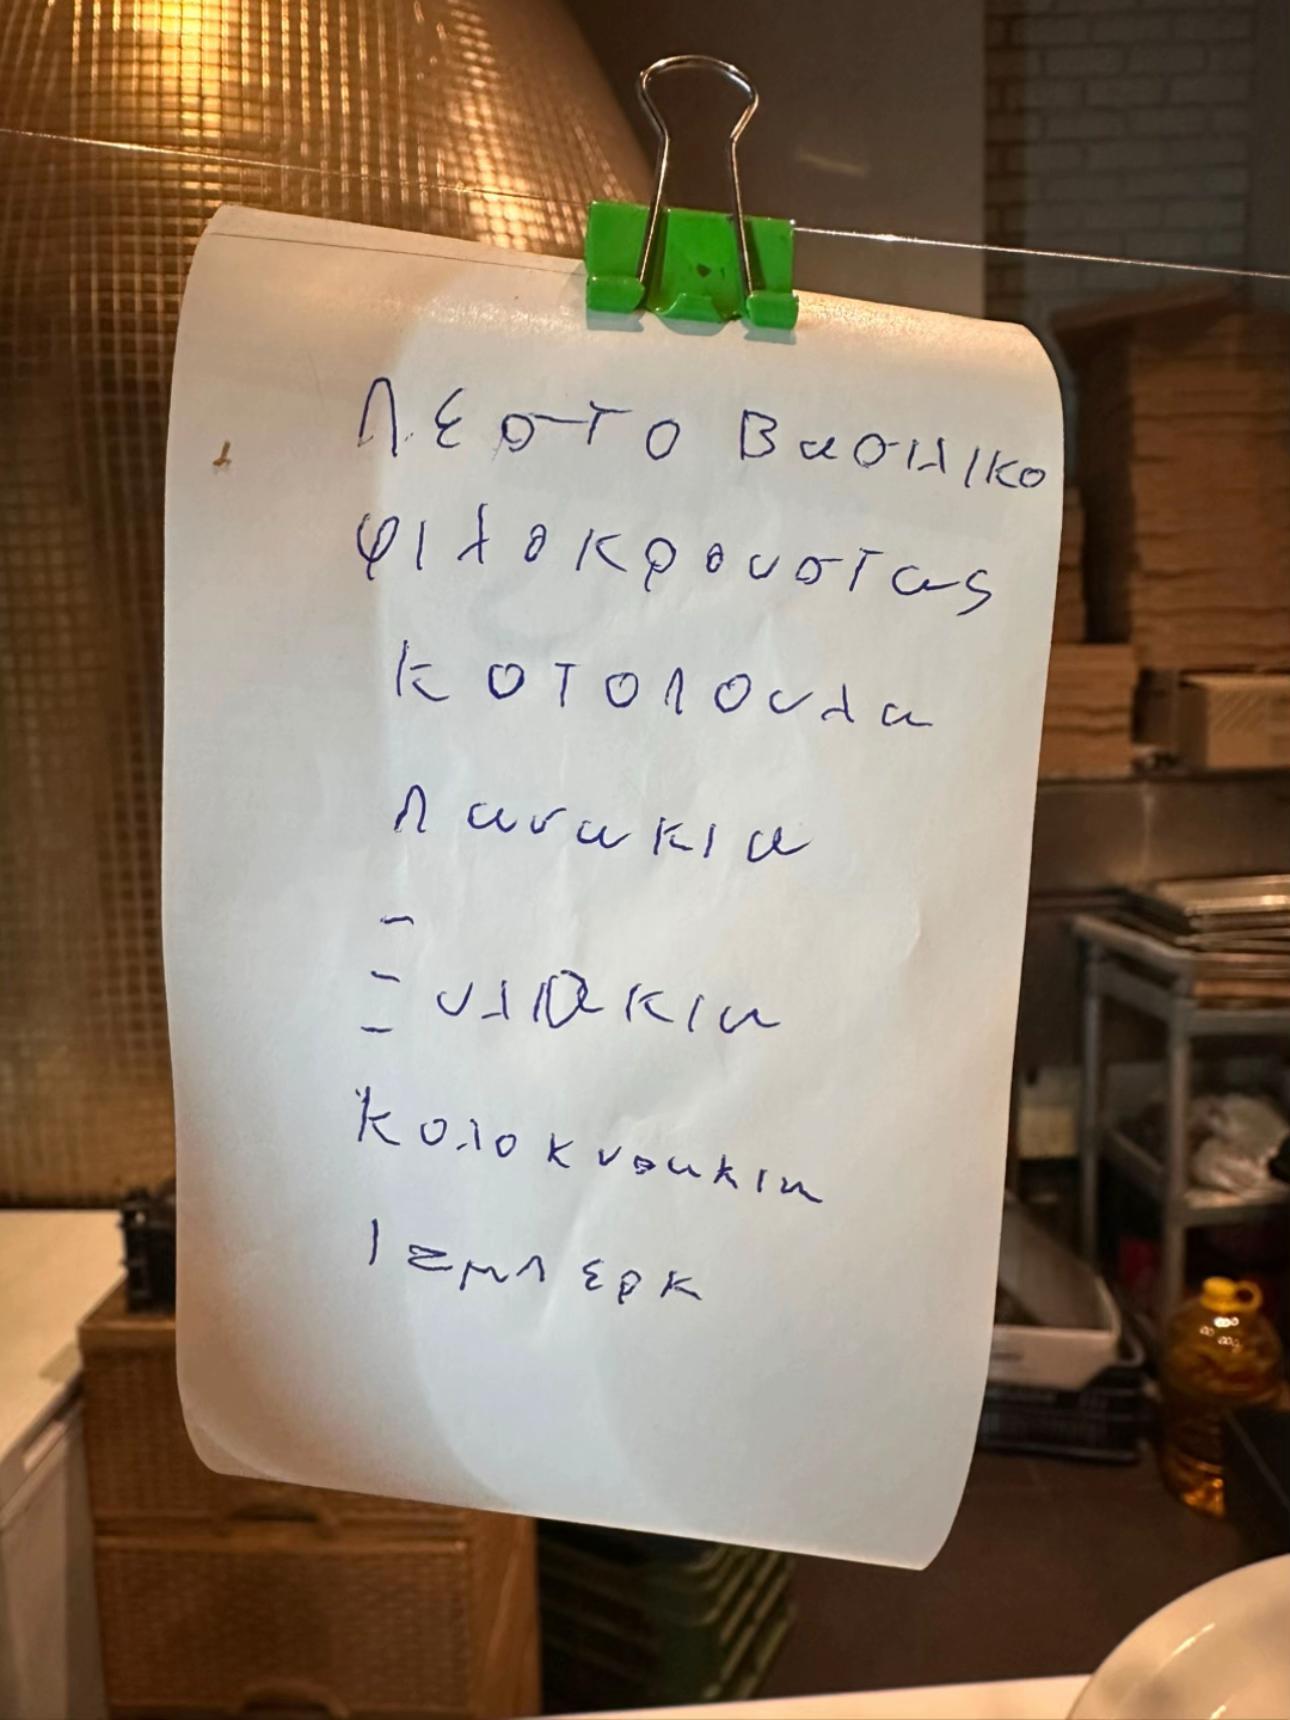 Πεστο Βασιλικο
φιλοκρουστας
κοτοπουλα
πανακια
Ξυλακια
κολοκυθακια
Ιζμπερκ